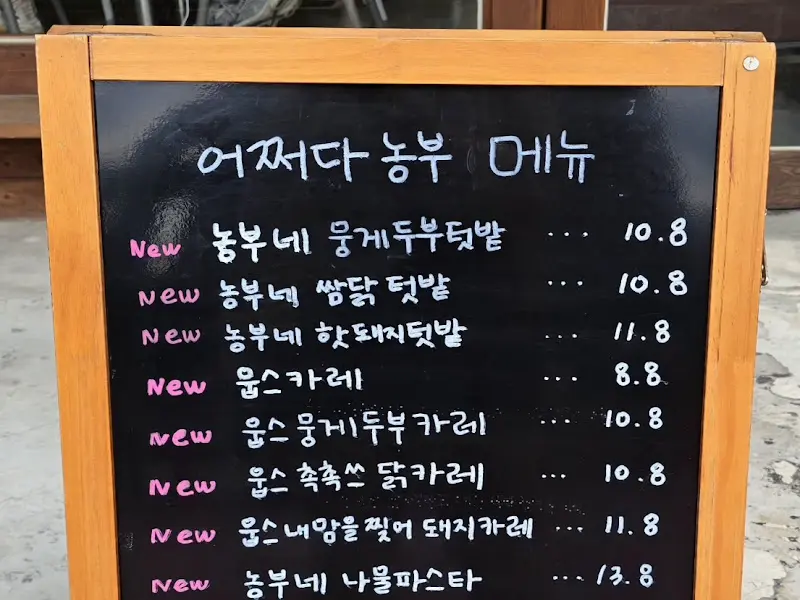 어쩌다 농부 메뉴
New 농부네 뭉게두부텃밭 ... 10.8
New 농부네 쌈닭 텃밭 ... 10.8
New 농부네 핫돼지텃밭 ... 11.8
New 웁스카레 ... 8.8
New 웁스 뭉게두부카레 ... 10.8
New 웁스 촉촉쓰 닭카레 ... 10.8
New 웁스내맘을찢어 돼지카레 ... 11.8
New 농부네 나물파스타 ... 13.8